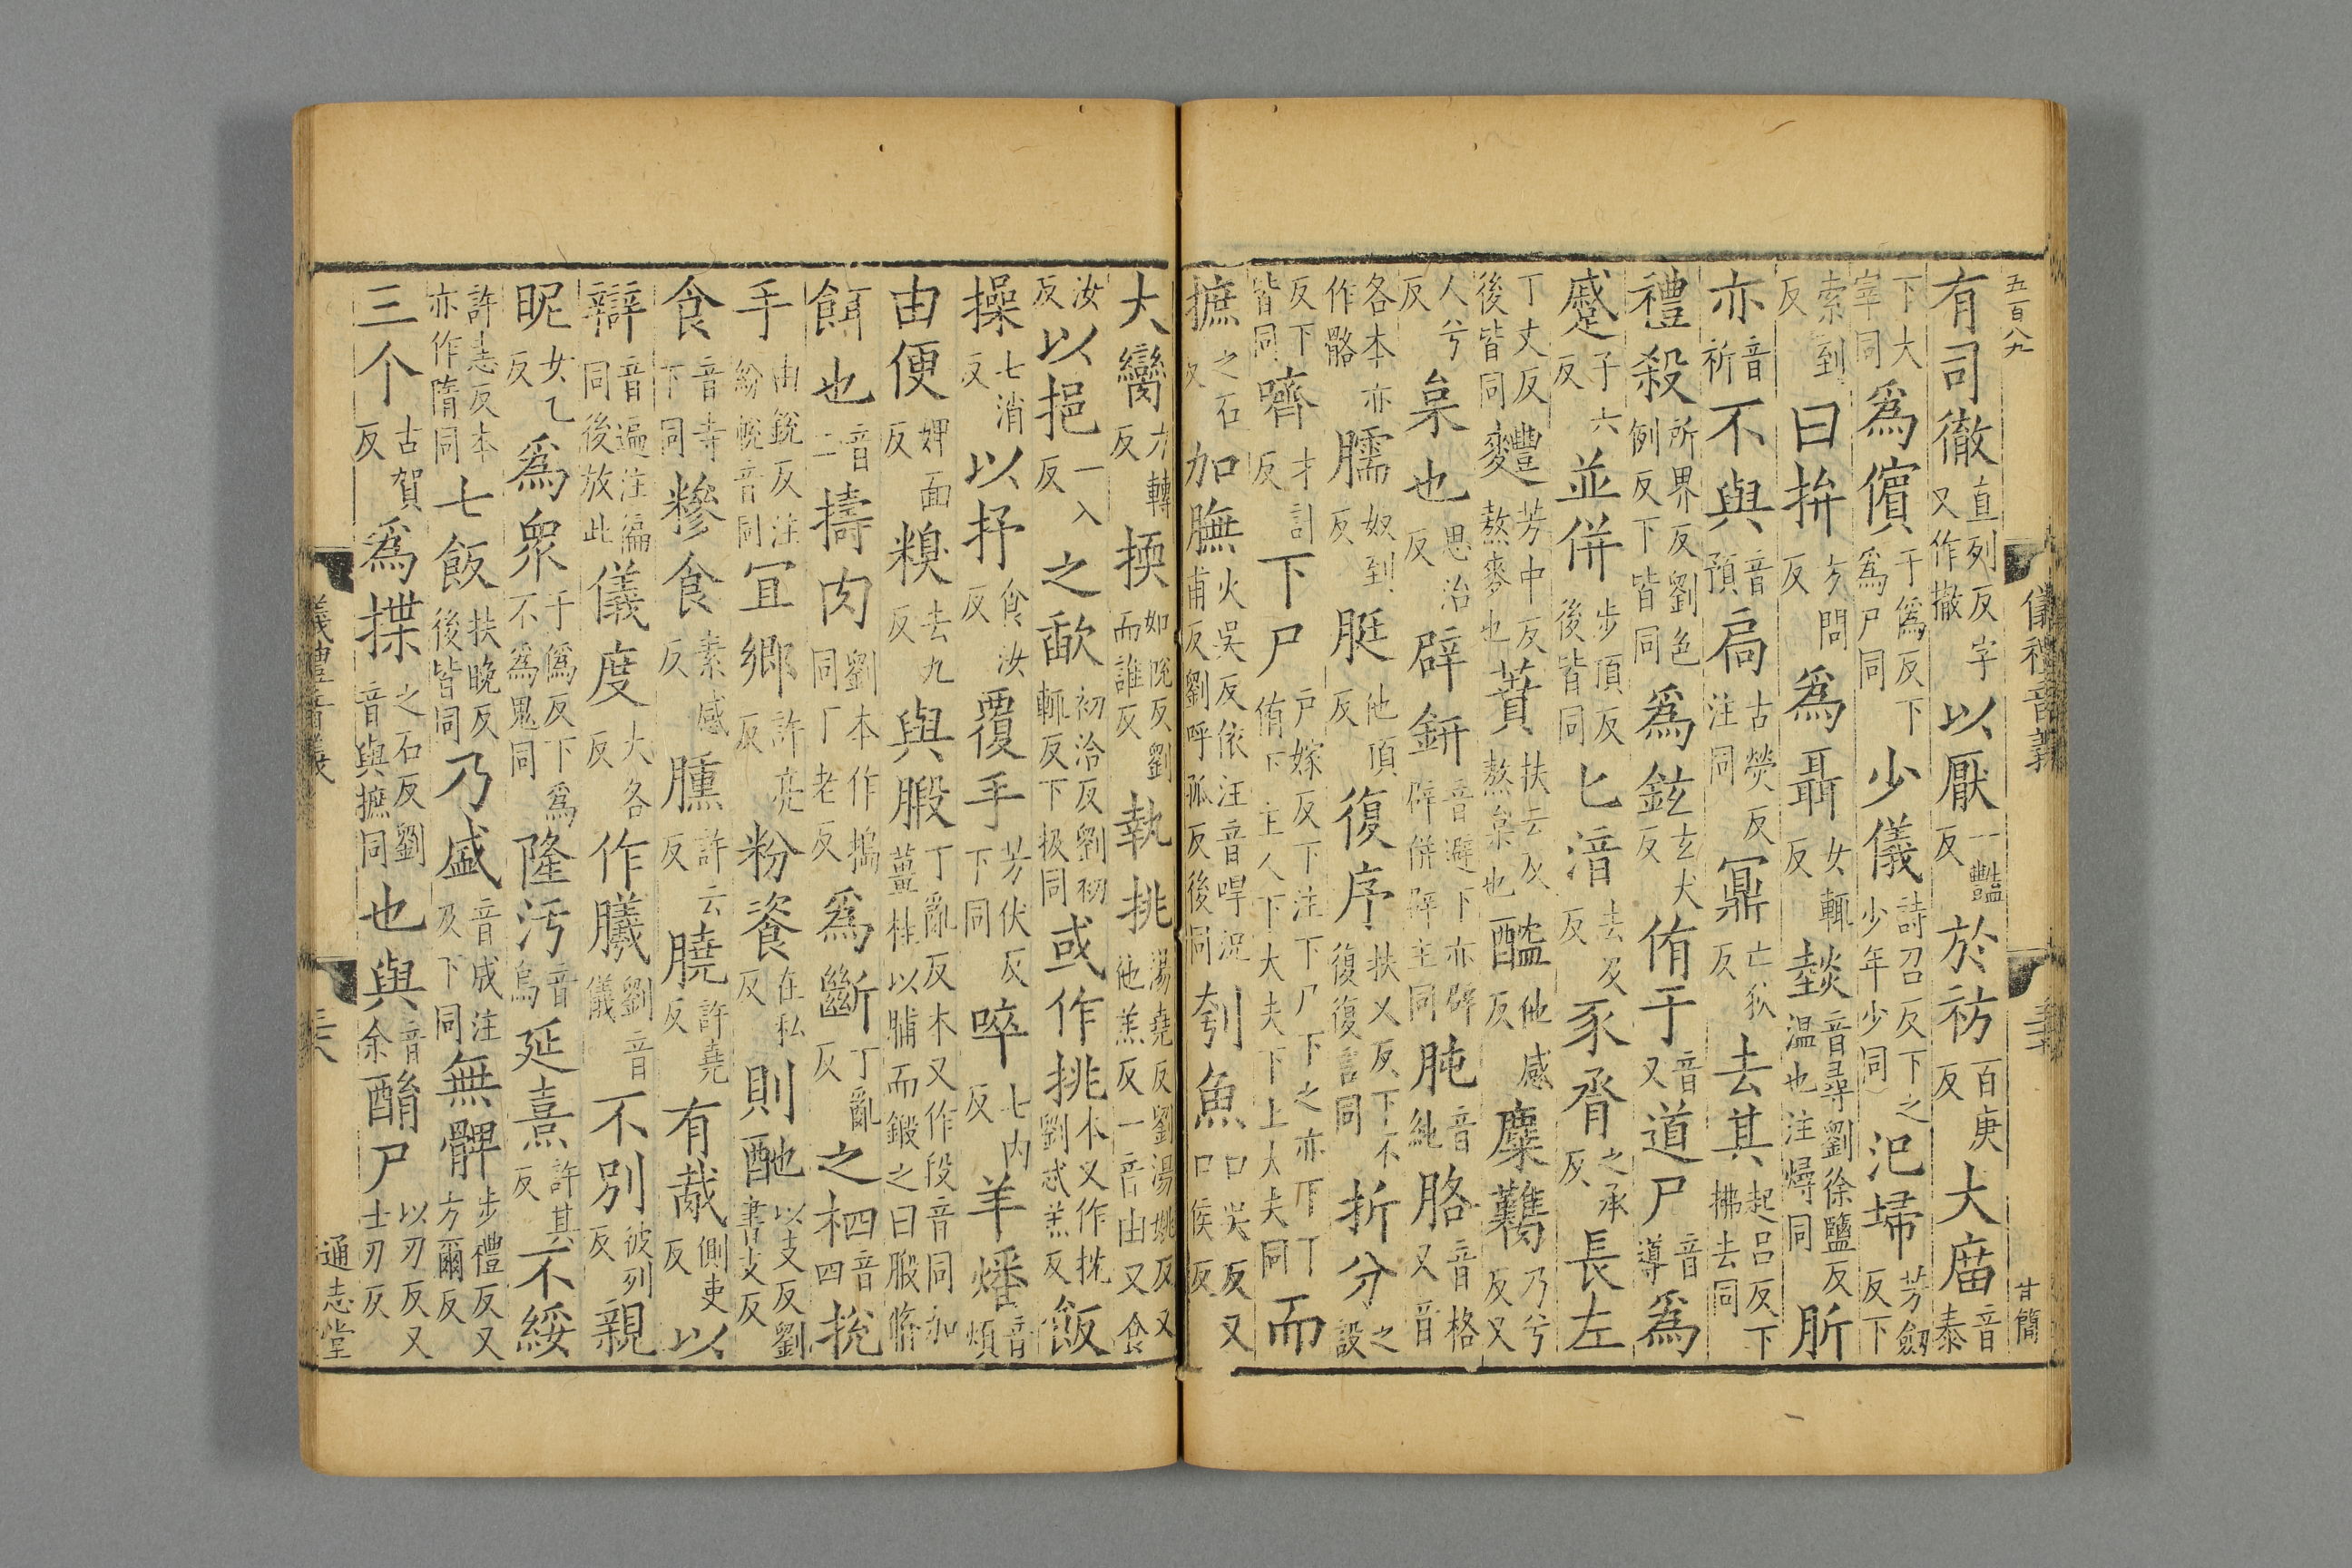 五百八九 甘簡
有司徹直列反字又作撤以厭一豔反於祊百庚反大庿音泰
下大宰同為儐于僞反下為尸同少儀詩召反下之少年少同氾埽芳劒反下
索到反曰拚方問反為聶女輒反爓音尋劉徐鹽反温也注燖同肵
音祈亦不與音預扃古熒反注同鼏亡狄反去其起呂反下拂去同
禮殺所界反劉色例反下皆同為鉉玄犬反侑于音又道尸音導為
蹙子六反並併步頂反後皆同匕湆去及反豕胥之承反長左
丁丈反後皆同麷芳中反熬麥也蕡扶云反熬枲也醓他感反麋臡乃兮反又
人兮反枲也思治反辟鉼音避下亦辟辟併辟主同肫音純胳音格又音
各本亦作骼臑奴到反脡他頂反復序扶又反下不復復言同折分之設
反下皆同嚌才計反下尸戶嫁反下注下尸下之亦下丁侑下主人下大夫下上大夫同而
摭之石反加膴火吳反依注音哻況甫反劉呼孤反後同刳魚口吳反又口侯反
儀禮音義
大臠力轉反擩如悅反劉而誰反執挑湯堯反劉湯姚反又他羔反一音由又食
汝反以挹一入反之歃初洽反劉初輒反下扱同或作挑本又作抭劉忒羔反飯
操七消反以抒食汝反覆手芳伏反下同啐七內反羊燔音煩
由便婢面反糗去九反與腶丁亂反本又作段音同加薑桂以脯而鍛之曰腶脩
餌也音二擣肉劉本作搗同丁老反為斷丁亂反之柶音四挩
手由銳反注紛帨音同宜鄉許亮反粉餈在私反則酏以支反劉書支反
食音寺下同糝食素感反臐許云反膮許堯反有胾側吏反以
辯音遍注徧同後放此儀度大各反作䑏劉音儀不別彼列反親
昵女乙反為眾于僞反下為不為鬼同隆汚音烏延熹許其反不綏
許恚反本亦作隋同七飯扶晚反後皆同乃盛音成注及下同無髀步禮反又方爾反
三个古賀反為揲之石反劉音與摭同也與音余酳尸以刃反又士刃反
儀禮音義 通志堂